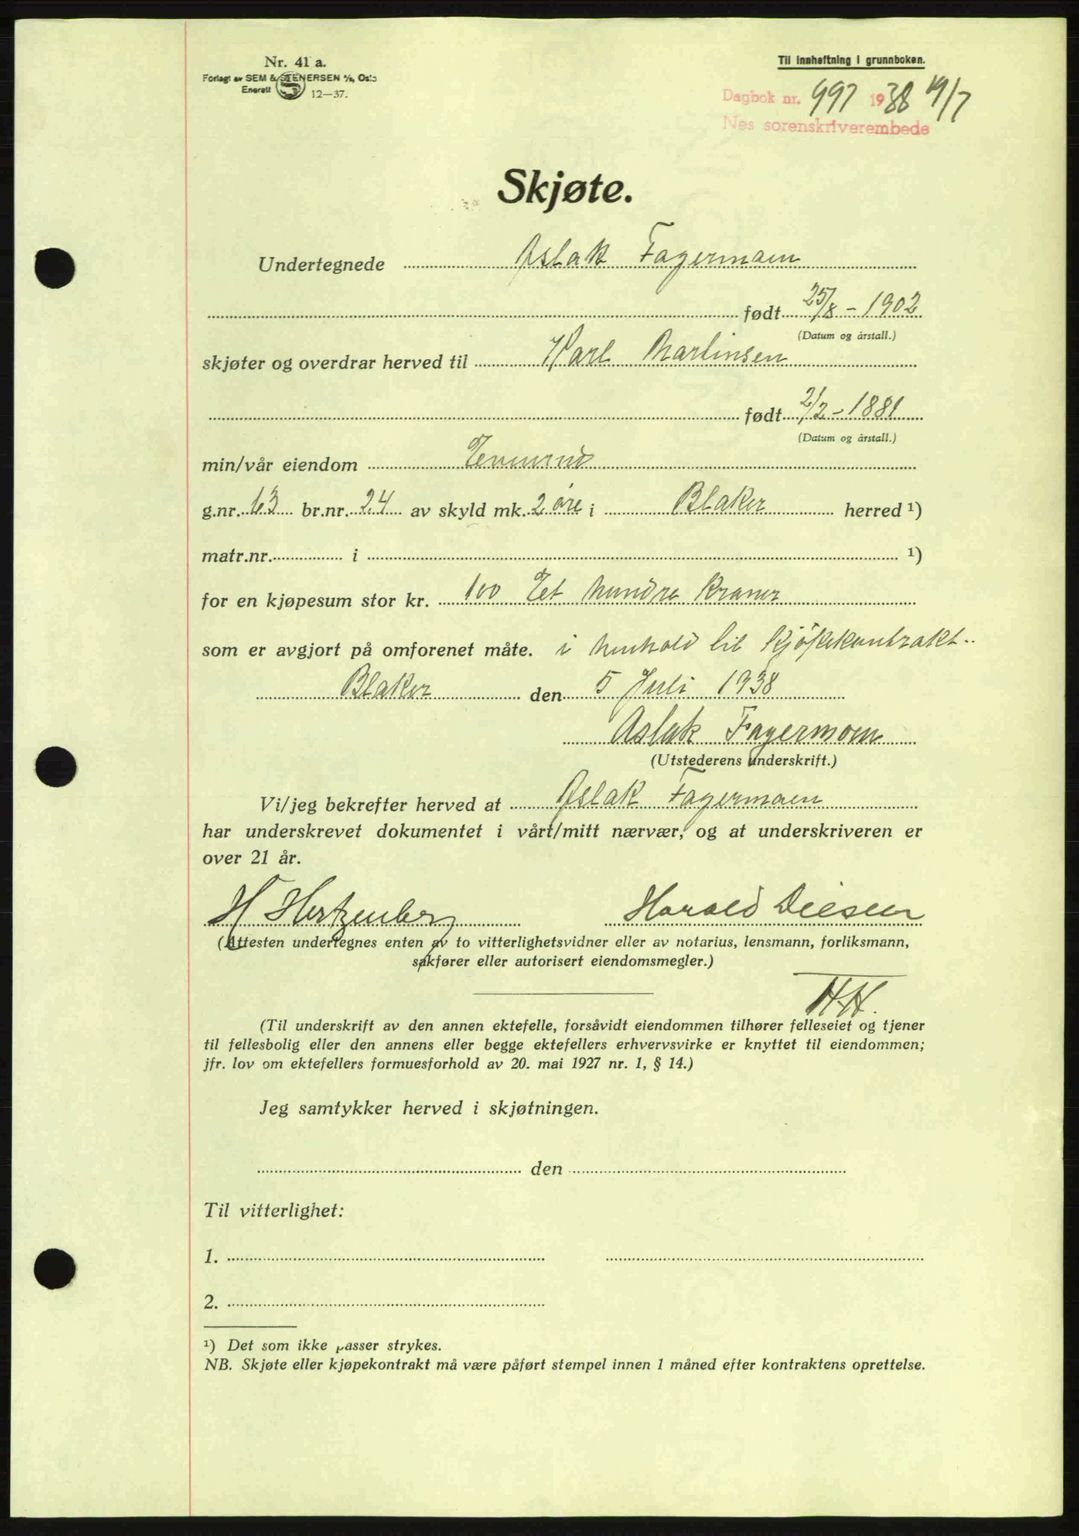 Nr. 41 a.
Forlagt av SEM & STENERSEN A/S, Oslo
Enerett 12—37.
Til innheftning i grunnboken.
Dagbok nr. 997 1938 19/7
Nes sorenskriverembede
Skjøte.
Undertegnede Aslak Fagermoen
født 25/8 - 1902
(Datum og årstall.)
skjøter og overdrar herved til Karl Martinsen
født 2/2 - 1881
(Datum og årstall.)
min/vår eiendom
g.nr. 63 br.nr. 24 av skyld mk. 2 øre i Blaker herred ¹)
matr.nr. i ¹)
for en kjøpesum stor kr. 100 Et hundre kroner
som er avgjort på omforenet måte. i henhold til kjøpekontrakt..
Blaker den 5 Juli 1938
Aslak Fagermoen
(Utstederens underskrift.)
Vi/jeg bekrefter herved at Aslak Fagermoen
har underskrevet dokumentet i vårt/mitt nærvær, og at underskriveren er
over 21 år.
H Hertzenberg Harald Diesen
(Attesten undertegnes enten av to vitterlighetsvidner eller av notarius, lensmann, forliksmann,
sakfører eller autorisert eiendomsmegler.)
H.H.
(Til underskrift av den annen ektefelle, forsåvidt eiendommen tilhører felleseiet og tjener
til fellesbolig eller den annens eller begge ektefellers erhvervsvirke er knyttet til eiendommen;
jfr. lov om ektefellers formuesforhold av 20. mai 1927 nr. 1, § 14.)
Jeg samtykker herved i skjøtningen.
den
Til vitterlighet:
1.
2.
¹) Det som ikke passer strykes.
NB. Skjøte eller kjøpekontrakt må være påført stempel innen 1 måned efter kontraktens oprettelse.